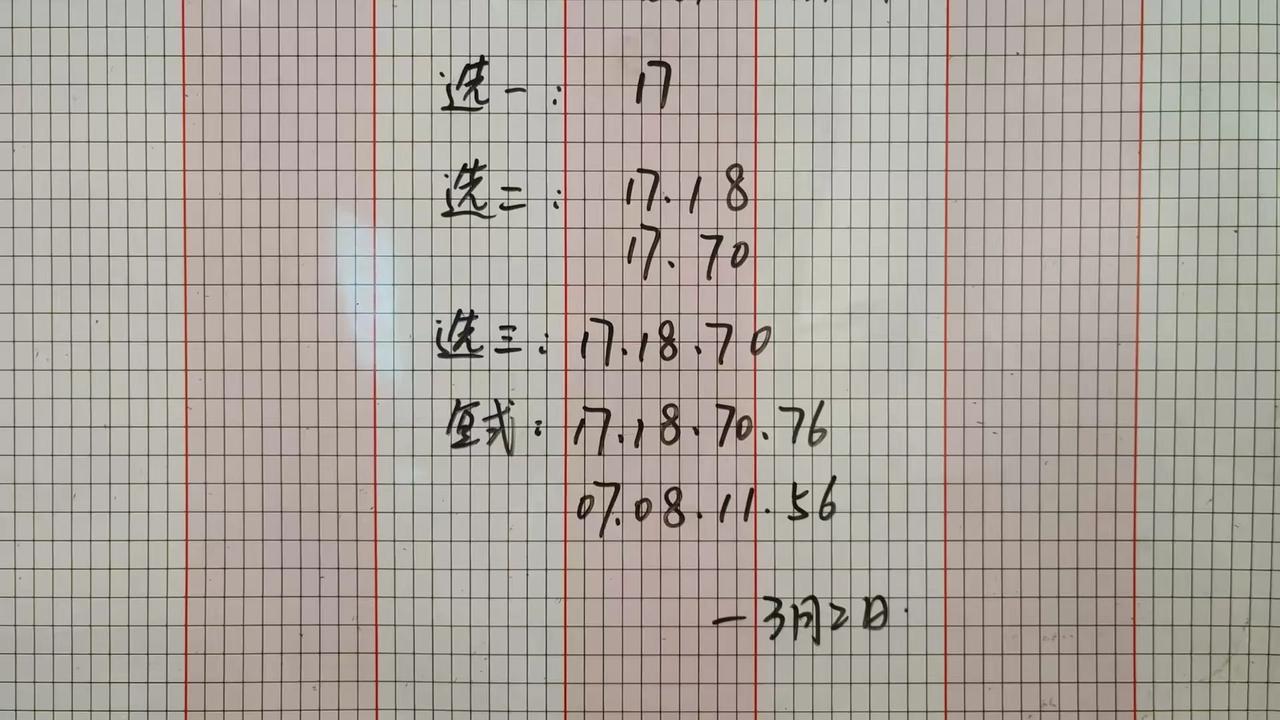 选一: 17
选二: 17.18
17.70
选三: 17.18.70
复式: 17.18.70.76
07.08.11.56
—3月2日.